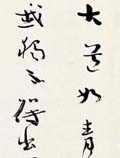 大道如青
我獨不得出